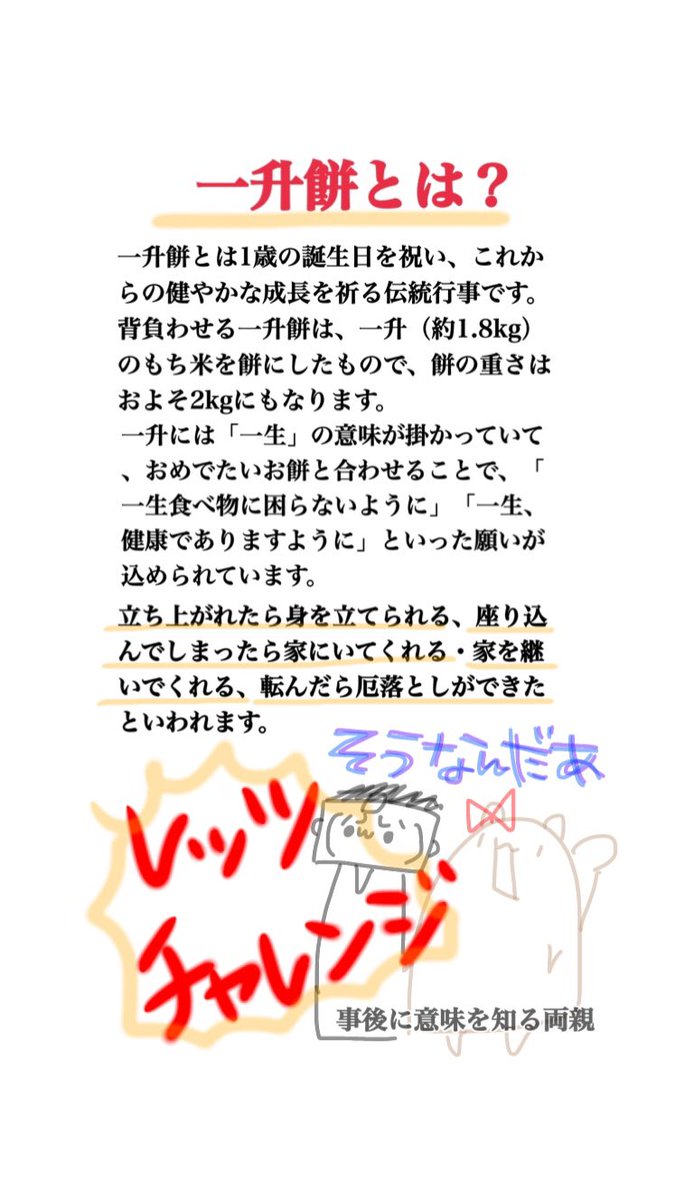 一升餅とは？
一升餅とは1歳の誕生日を祝い、これか
らの健やかな成長を祈る伝統行事です。
背負わせる一升餅は、一升（約1.8kg）
のもち米を餅にしたもので、餅の重さは
およそ2kgにもなります。
一升には「一生」の意味が掛かっていて
、おめでたいお餅と合わせることで、「
一生食べ物に困らないように」「一生、
健康でありますように」といった願いが
込められています。
立ち上がれたら身を立てられる、座り込
んでしまったら家にいてくれる・家を継
いでくれる、転んだら厄落としができた
といわれます。
そうなんだあ
レッツ
チャレンジ
事後に意味を知る両親